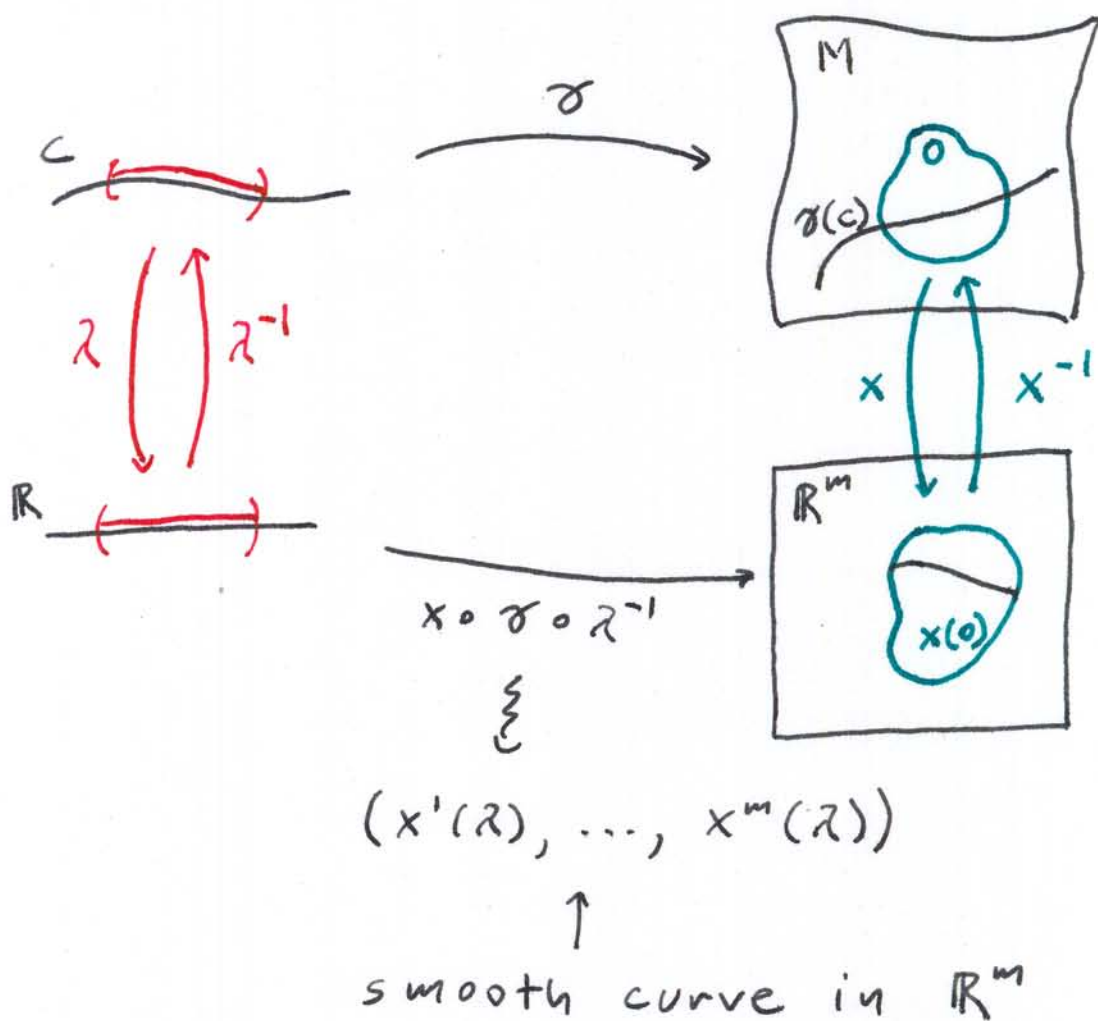 M
γ
C
O
γ(C)
λ λ⁻¹
x x⁻¹
ℝ
ℝᵐ
x ∘ γ ∘ λ⁻¹
x(O)
(x¹(λ), ..., xᵐ(λ))
smooth curve in ℝᵐ